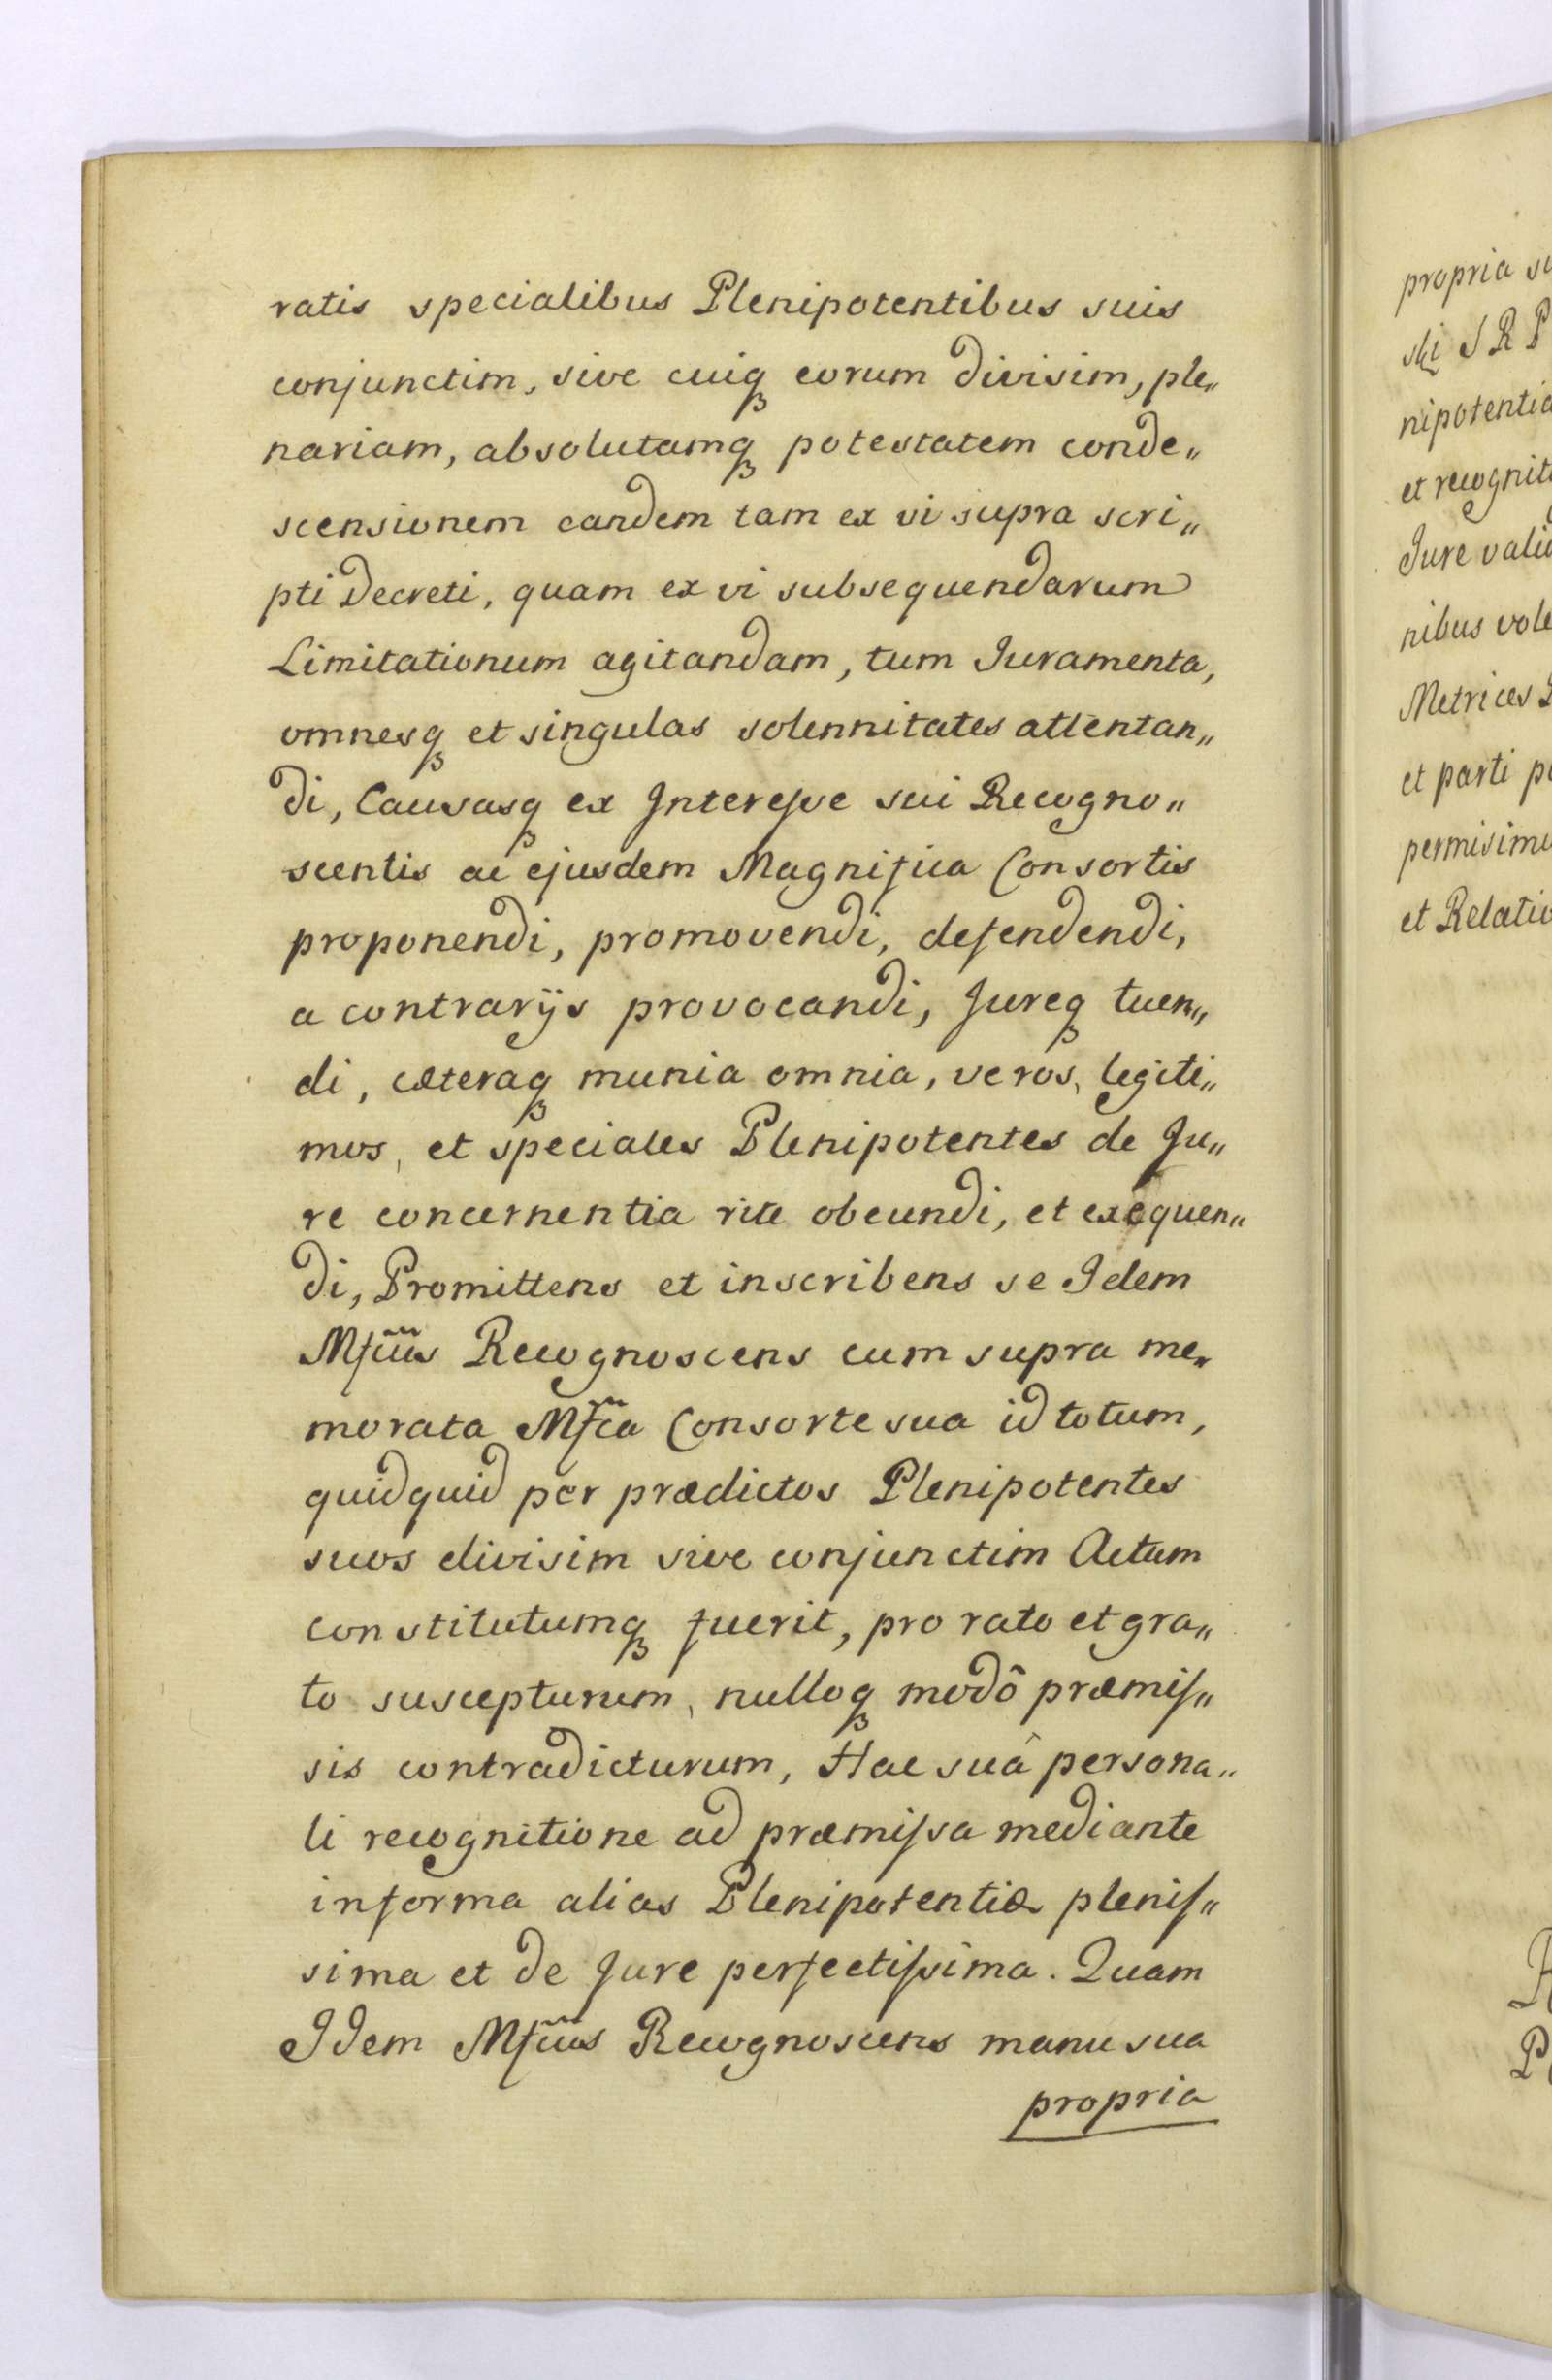 ratis specialibus Plenipotentibus suis
conjunctim, sive cuiqꝫ eorum divisim, ple„
nariam, absolutamqꝫ potestatem conde„
scensionem eandem tam ex vi supra scri„
pti Decreti, quam ex vi subsequendarum
Limitationum agitandam, tum Juramenta,
omnesqꝫ et singulas solennitates attentan„
di, Causasqꝫ ex Interesse sui Recogno„
scentis ac ejusdem Magnifica Consortis
proponendi, promovendi, defendendi,
a contrarijs provocandi, Jureqꝫ tuen„
di, cæteraqꝫ munia omnia, veros, legiti„
mos, et speciales Plenipotentes de Ju„
re concernentia rite obeundi, et exequen„
di, Promittens et inscribens se Idem
Mfcũs Recognoscens cum supra me„
morata Mfc̃a Consorte sua id totum,
quidquid per prædictos Plenipotentes
suos divisim sive conjunctim Actum
constitutumqꝫ fuerit, pro rato et gra„
to suscepturum, nulloqꝫ modô præmis„
sis contradicturum, Hac suâ persona„
li recognitione ad præmissa mediante
in forma alias Plenipotentiæ plenis„
sima et de Jure perfectissima. Quam
Idem Mfcũs Recognoscens manu sua
propria
propria
ski S R P
nipotentia
et recognit
Jure vali
nibus vole
Metrices
et parti
permisimu
et Relatio